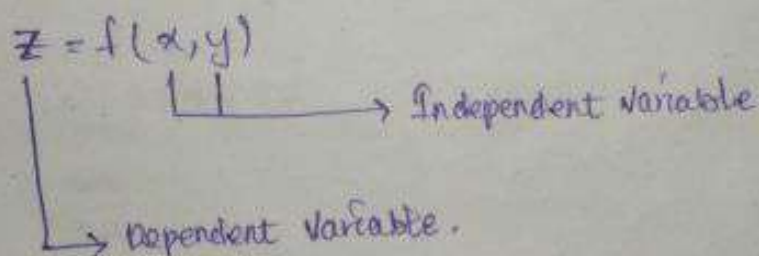 z = f(x, y)
Independent Variable
Dependent Variable.